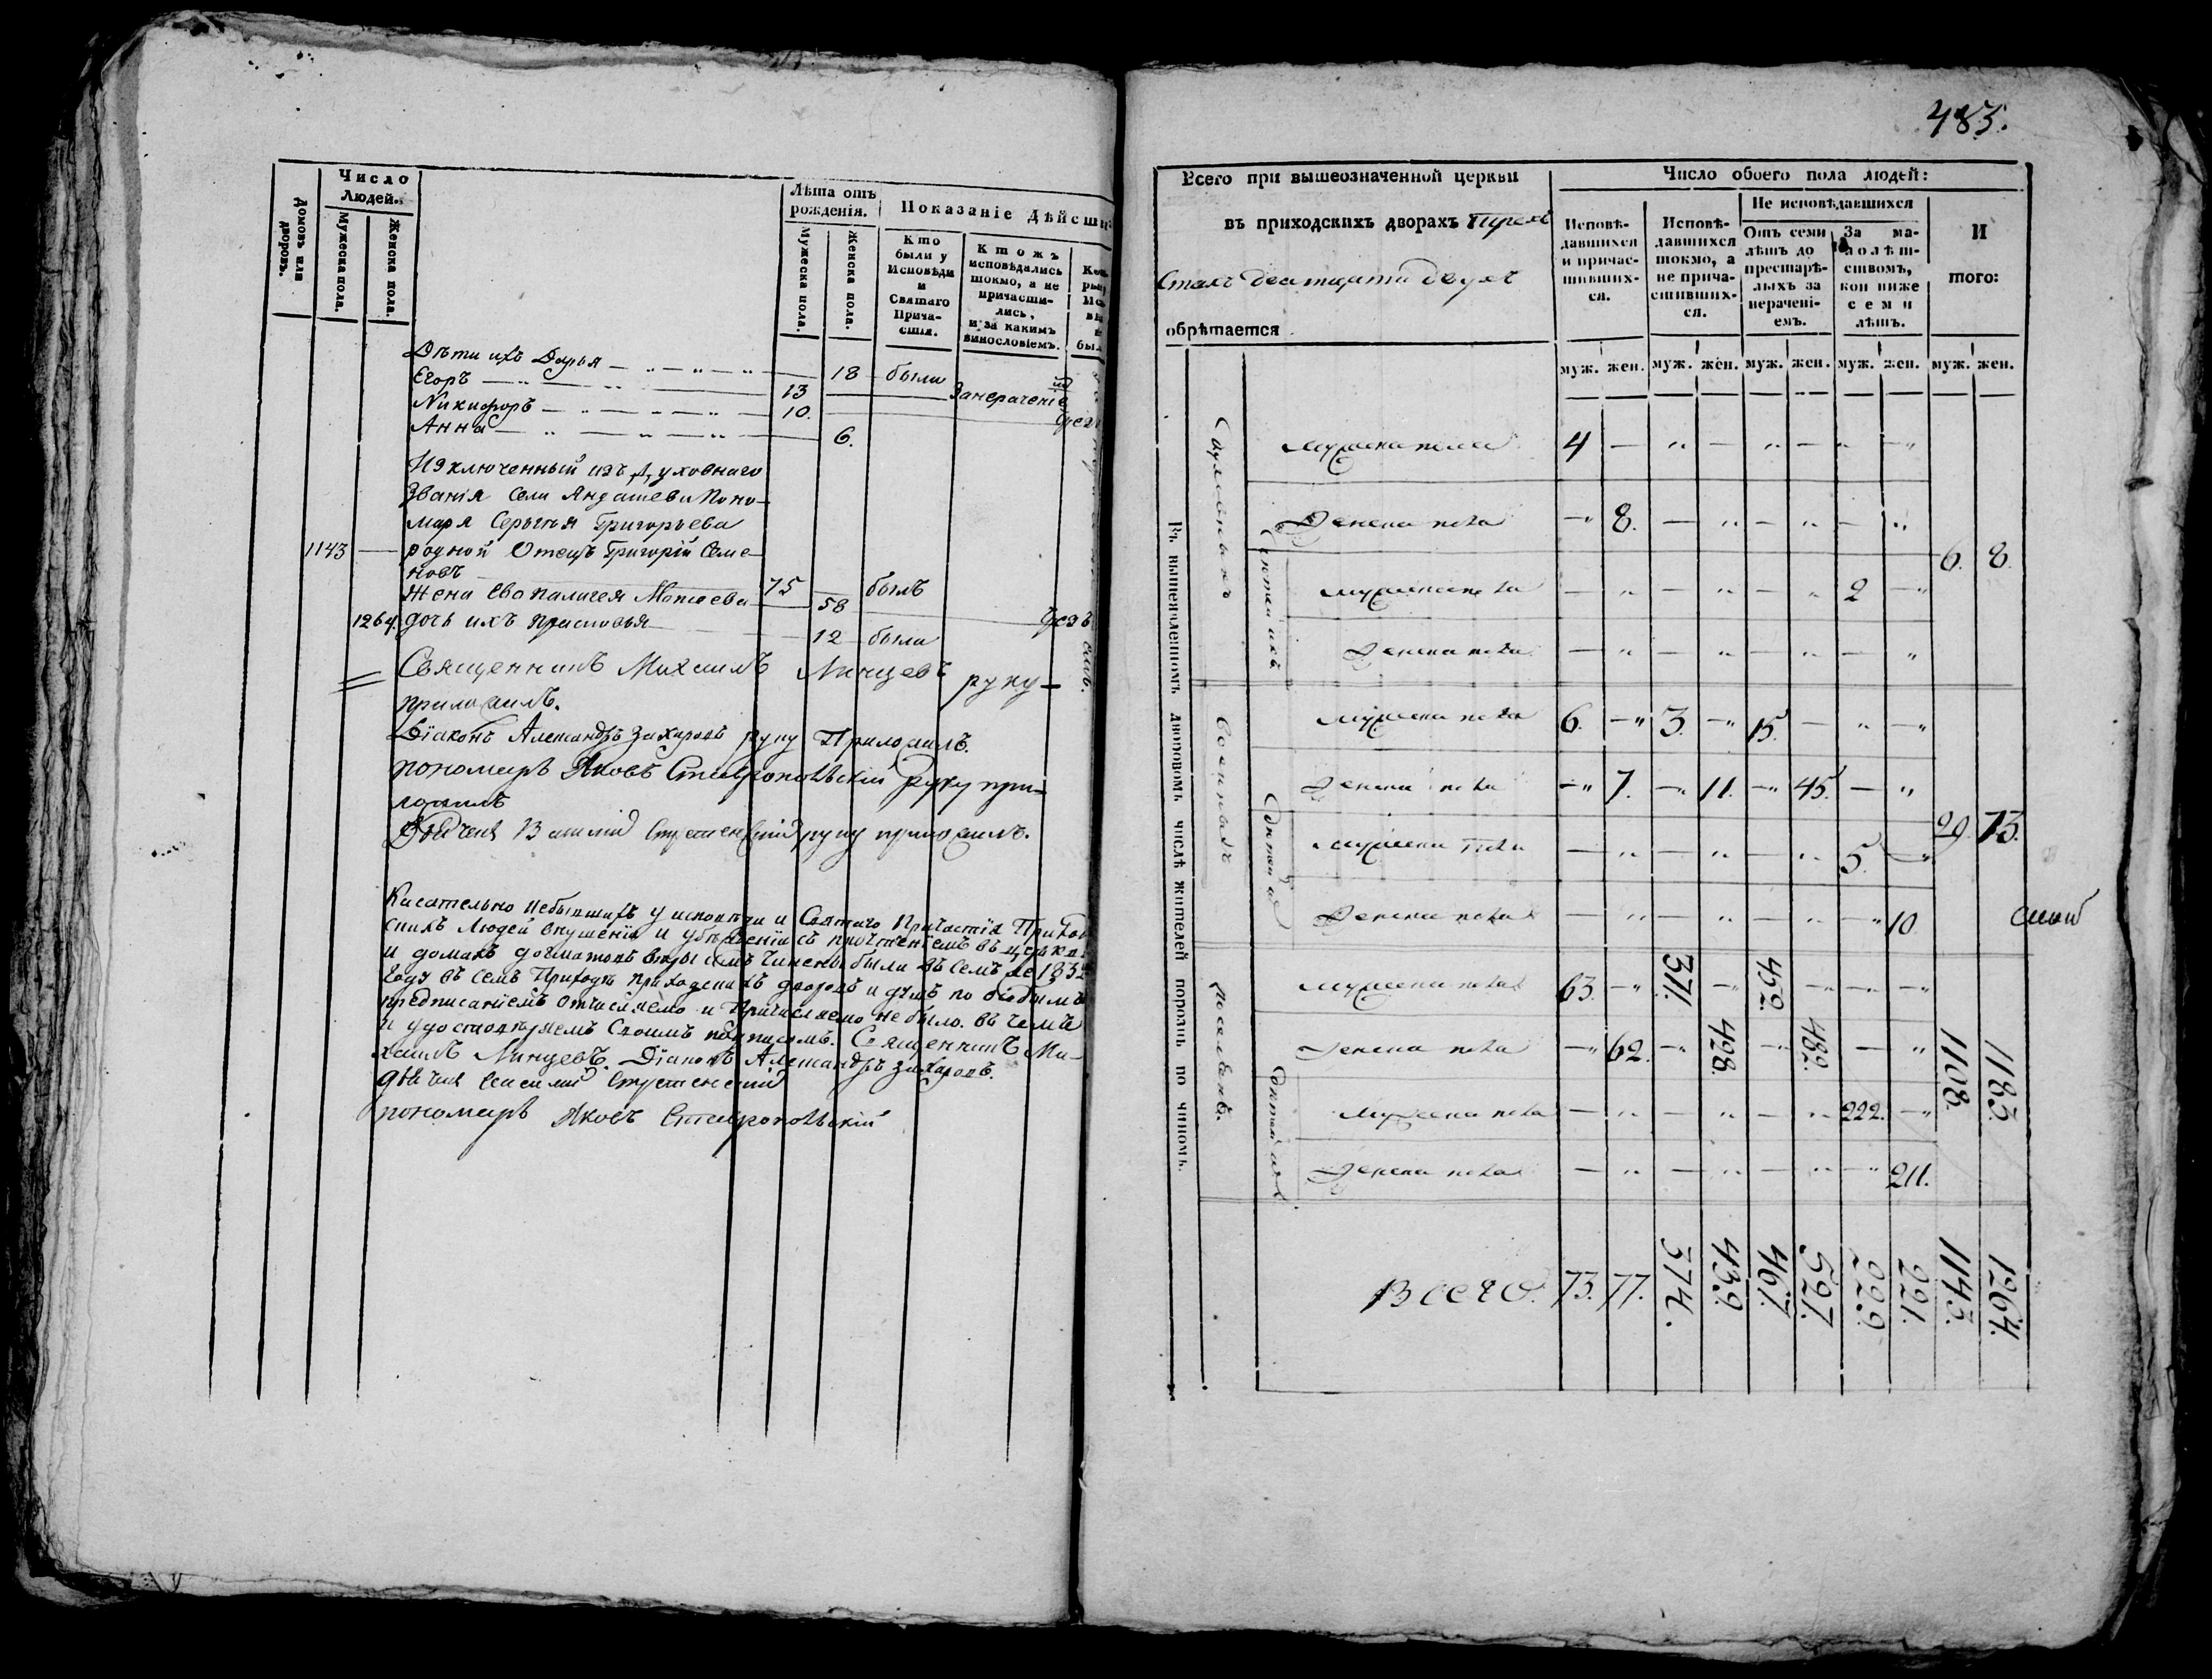 Число
Людей.
Домовъ или дворовъ.
Мужеска пола.
Женска пола.
Лѣта отъ
рожденія.
Мужеска пола.
Женска пола.
Показаніе Дѣйст
Кто
были у
Исповѣди
и
Святаго
Прича-
стія.
Кто жъ
исповѣдались
токмо, а не
причасти-
лись,
и за какимъ
винословіемъ.
Дѣти ихъ Дарья 18 были
Егоръ 13 Занерачені
Никифоръ 10.
Анна 6.
Изключенный изъ духовнаго
Званія Села Яндашева Поно-
маря Сергѣя Григорьева
1143 родной Отецъ Григорій Семе-
новъ 75 былъ
Жена Евпалигея Матѳева 58
1264. дочь ихъ Прасковья 12 были
Священникъ Михаилъ Линцевъ руку
приложилъ.
Діаконъ Александръ Захаровъ руку Приложилъ.
пономарь Яковъ Ставропольскій руку при-
ложилъ
Дьячекъ Василій Стретенскій руку приложилъ.
Касательно небывшихъ у исповѣди и Святаго Причастія Приход
скихъ Людей внушенія и убѣжденія съ прочтеніемъ въ церкви
и домахъ догматовъ вѣры имъ чинены были въ семъ же 1832
Году въ семъ Приходѣ Приходскихъ дворовъ и душъ по особымъ
предписаніемъ отчисляемо и Причисляемо не было. въ чемъ
и удостовѣряемъ Своимъ подписомъ. Священникъ Ми-
хаилъ Линцевъ. Діаконъ Александръ Захаровъ.
дьячекъ Василій Стретенскій
пономарь Яковъ Ставропольскій
483.
Всего при вышеозначенной церкви
въ приходскихъ дворахъ Трехъ
Стахъ двадцати двухъ
обрѣтается
Число обоего пола людей:
Исповѣ-
давшихся
и причас-
тивших-
ся.
Исповѣ-
давшихся
токмо, а
не прича-
стивших-
ся.
Не исповѣдавшихся
Отъ семи
лѣтъ до
престарѣ-
лыхъ за
нерачені-
емъ.
За ма-
лолѣт-
ствомъ,
кои ниже
семи
лѣтъ.
И
того:
муж. жен. муж. жен. муж. жен. муж. жен. муж. жен.
Въ вышеявленномъ дворовомъ числѣ жителей порознь по чиномъ.
Духовныхъ
мужеска пола 4
Женска пола 8.
Дѣтей ихъ
мужеска пола 2
Женска пола
6. 8.
Военныхъ
мужеска пола 6. 3. 15.
Женска пола 7. 11. 45.
Дѣтей ихъ
мужеска пола 5.
Женска пола 10
29. 73.
поселянъ.
мужеска пола 63. 371. 452.
Женска пола 62. 428. 482.
Дѣтей ихъ
мужеска пола 222.
Женска пола 211.
1108. 1183.
Всего. 73. 77. 374. 439. 467. 527. 229. 221. 1143. 1264.